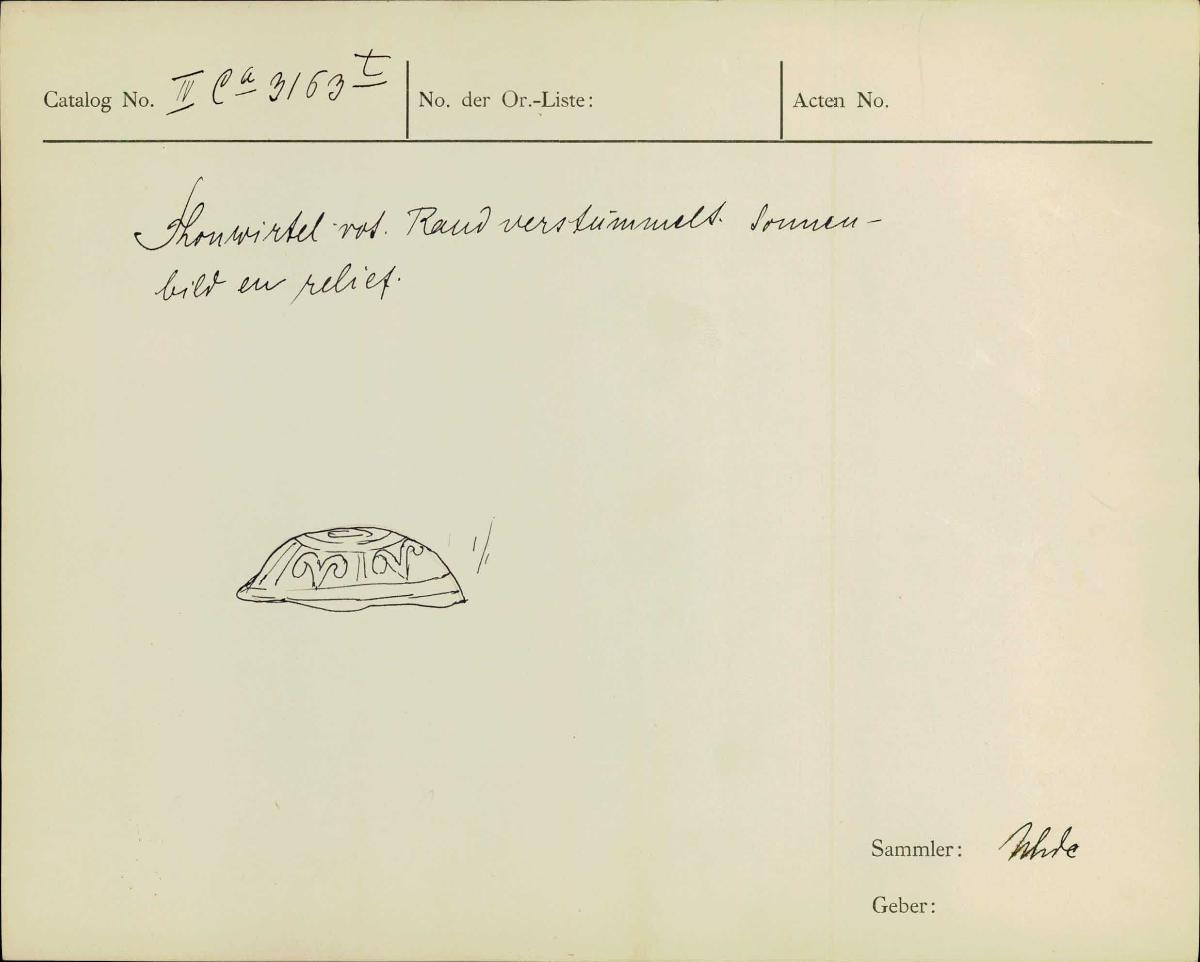 Catalog No. IV Ca 3163 t No. der Or.-Liste: Acten No.
Thonwirtel rot. Rand verstümmelt. Sonnen-
bild en relief.
1/1
Sammler: Uhde
Geber: